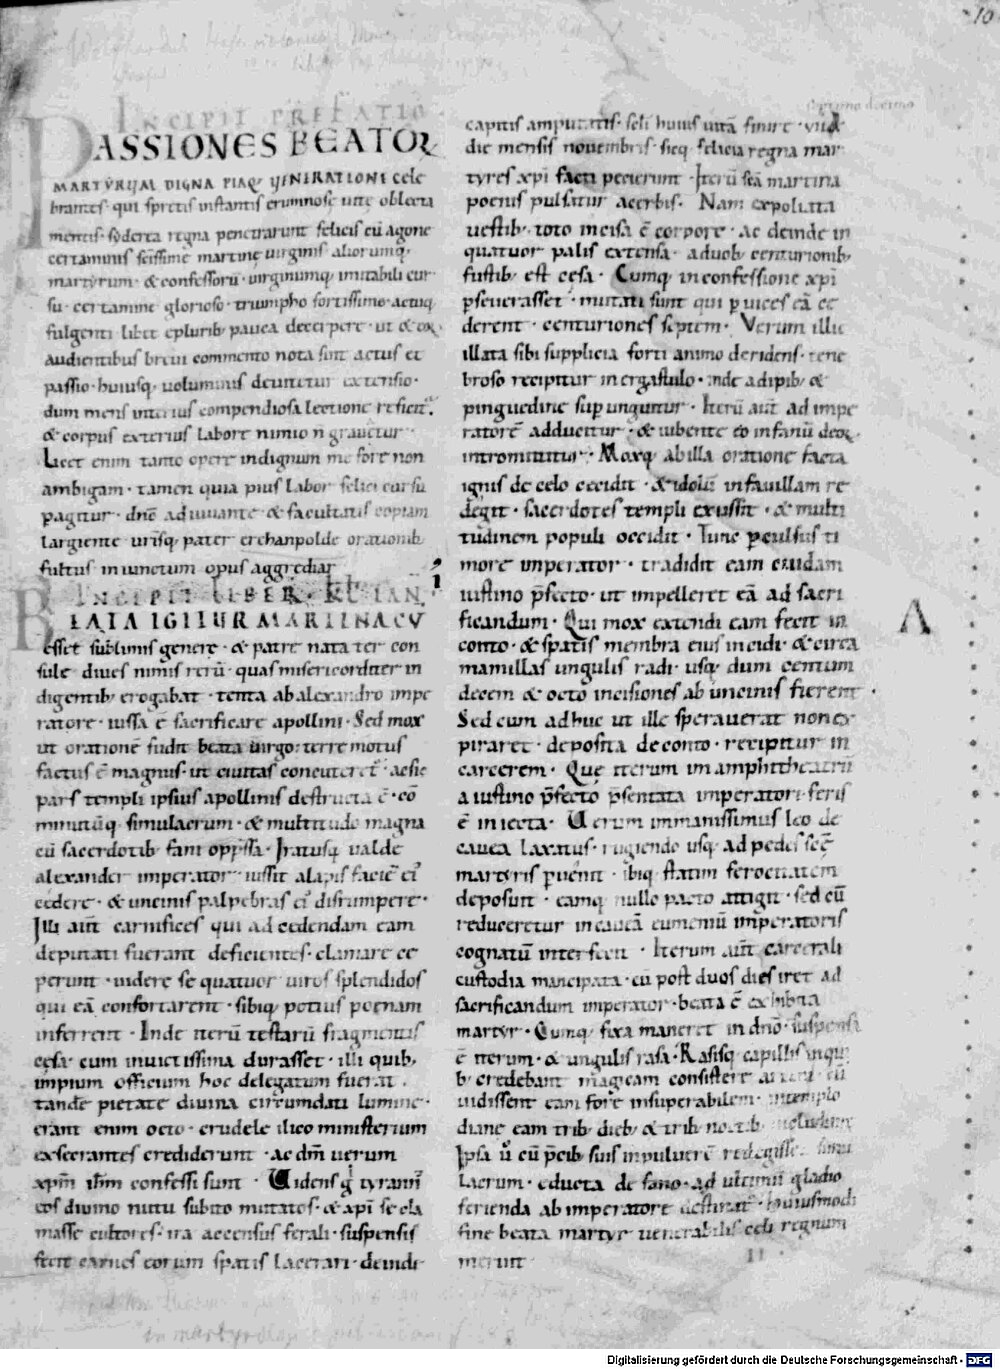 10
INCIPIT PREFATIO
PASSIONES BEATOꝜ
MARTYRUM DIGNA PIAQ; UENERATIONE cele
brantes· qui spretis instantis erumnosę uitę oblecta
mentis· siderea regna penetrarunt felicis cū agone
certaminis scīssimę martinę uirginis aliorumq;
martyrum· & confessorū· uirginumq; imitabili cur
su· certamine glorioso· triumpho fortissimo· actuq;
fulgenti· libet eplurib; pauca decerpere· ut & cor
audientibus breui commento nota sint actus et
passio· huiusq; voluminis deuitetur extensio·
dum mens interius compendiosa lectione reficit̄·
& corpus exterius labore nimio n̄ grauetur·
Licet enim tanto opere indignum me fore non
ambigam· tamen quia pius labor felici cursu
pagitur· dn̄o adiuuante & facultatis copiam
largiente urīsq; pater erchanpolde orationib;
fultus iniunctum opus aggrediar
INCIPIT LIBER· KŁ IAN
BEATA IGITUR MARTINA CŪ
esset sublimis genere· & patre nata ter con
sule diues nimis rerū· quas misericorditer in
digentib; erogabat· tenta ab alexandro impe
ratore· iussa ē sacrificare apollini· Sed mox
ut orationē fudit beata uirgo· terre motus
factus ē magnus· ut ciuitas concuteret̄· ac sic
pars templi ipsius apollinis destructa ē· cō
minutūq; simulacrum· & multitudo magna
cū sacerdotib; fani opp̄ssa· Iratusq; valde
alexander imperator· iussit alapis faciē ei᷒
cedere· & uncinis palpebras ei᷒ disrumpere·
Illi aut̄ carnifices qui ad cedendam eam
deputati fuerant deficientes· clamare ce
perunt· uidere se quatuor uiros splendidos
qui eā confortarent· sibiq; potius poenam
inferrent· Inde iterū testarū fragmentis
cęsa· cum inuictissima durasset· illi quib;
impium officium hoc delegatum fuerat·
tande pietate diuina circumdati lumine·
erant enim octo· crudele ilico ministerium
exsecrantes crediderunt· ac dm̄ uerum
xpm̄ ihm̄ confessi sunt· Uidens g tyrann᷒
eos diuino nutu subito mutatos· & xpi se cla
masse cultores· ira accensus ferali· suspensis
fecit carnes eorum spatis lacerari· deinde
capitis amputatis· seli huius uitā finire
die mensis nouembris· sicq; felicia regna mar
tyres xpi facti petierunt· Iterū scā martina
poenis pulsatur acerbis· Nam expoliata
uestib; toto incisa ē corpore· ac deinde in
quatuor palis extensa· aduob; centurionib;
fustib; est cęsa· Cumq; inconfessione xpi
pseuerasset· mutati sunt qui p uices eā ce
derent· centuriones septem· Verum illic
illata sibi supplicia forti animo deridens· tene
broso recipitur in ergastulo· inde adipib; &
pinguedine sup unguitur· Iterū aut̄ ad impe
ratorē adducitur· & iubente eo infanū deoꝝ
intromittitur· Moxq; ab illa oratione facta
ignis de celo cecidit· & idolū infauillam re
degit· sacerdotes templi exussit· & multi
tudinem populi occidit· Tunc pculsus ti
more imperator· tradidit eam cuidam
iustino p̄fecto· ut impelleret eā ad sacri
ficandum· Qui mox extendi eam fecit in
conto· & spatis membra eius incidi· & circa
mamillas ungulis radi· usq; dum centum
decem & octo incisiones ab uncinis fierent·
Sed cum adhuc ut ille sperauerat non ex
piraret· deposita deconto· recipitur in
carcerem· Que iterum inamphitheatrū
a iustino p̄fecto p̄sentata imperatori· feris
ē iniecta· Uerum immanissimus leo de
cauea laxatus· rugiendo usq; ad pedes scę̄
martyris puenit· ibiq; statim ferocitatem
deposuit· eamq; nullo pacto attigit· sed cū
reduceretur incaueā eumeniū imperatoris
cognatū interfecit· Iterum aut̄ carcerali
custodia mancipata· cū post duos dies iret ad
sacrificandum imperator· beata ē exhibita
martyr· Cumq; fixa maneret in dnō· suspensa
ē iterum· & ungulis rasa· Rasisq; capillis inqui
b; credebant magicam consistere artem· cū
uidissent eam fore insuperabilem· intemplo
diane eam trib; dieb; & trib; noctib; incluserunt
Ipsa ů cū p̄cib; suis inpuluerē redegisset simu
lacrum· educta de fano· ad ultimū gladio
ferienda ab imperatore destinat̄· huiusmodi
fine beata martyr uenerabilis celi regnum
meruit II
Digitalisierung gefördert durch die Deutsche Forschungsgemeinschaft - DFG